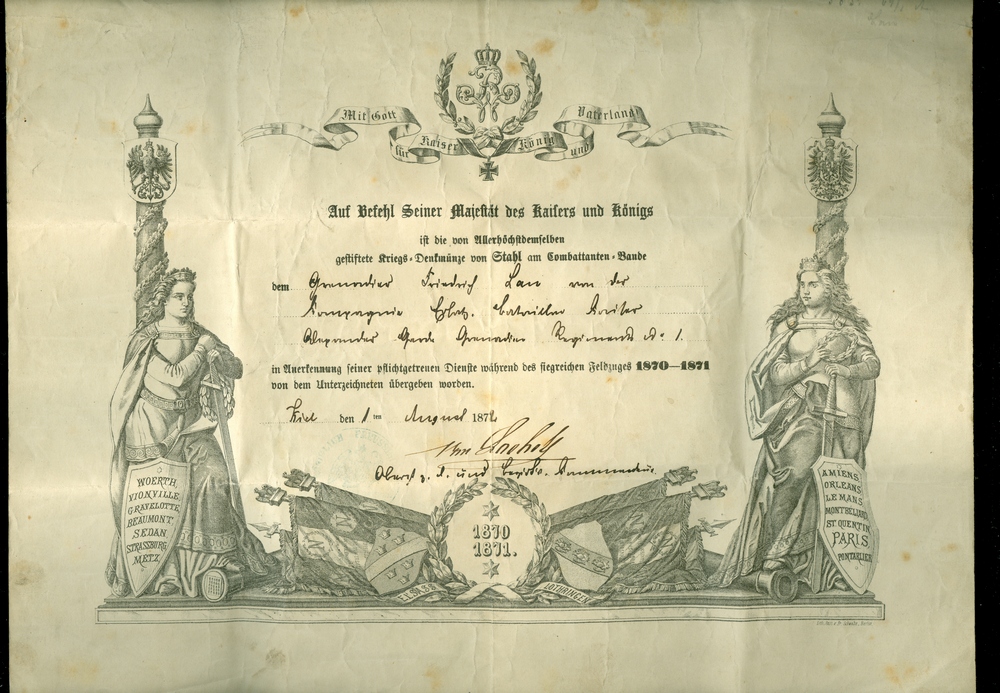 Mit Gott
für Kaiser
König und
Vaterland
Auf Befehl Seiner Majestät des Kaisers und Königs
ist die von Allerhöchstdemselben
gestiftete Kriegs-Denkmünze von Stahl am Combattanten-Bande
dem Grenadier Friedrich Lau von der
Kompagnie Ersatz. Bataillon Kaiser
Alexander Garde Grenadier Regiments No 1.
in Anerkennung seiner pflichtgetreuen Dienste während des siegreichen Feldzuges 1870—1871
von dem Unterzeichneten übergeben worden.
Kiel den 1ten August 1872
von
Oberst z. D. und Bezirks. Kommandeur
WOERTH
VIONVILLE
GRAVELOTTE
BEAUMONT
SEDAN
STRASSBURG
METZ
AMIENS
ORLEANS
LE MANS
MONTBELIARD
ST QUENTIN
PARIS
PONTARLIER
1870
1871.
ELSASS
LOTHRINGEN